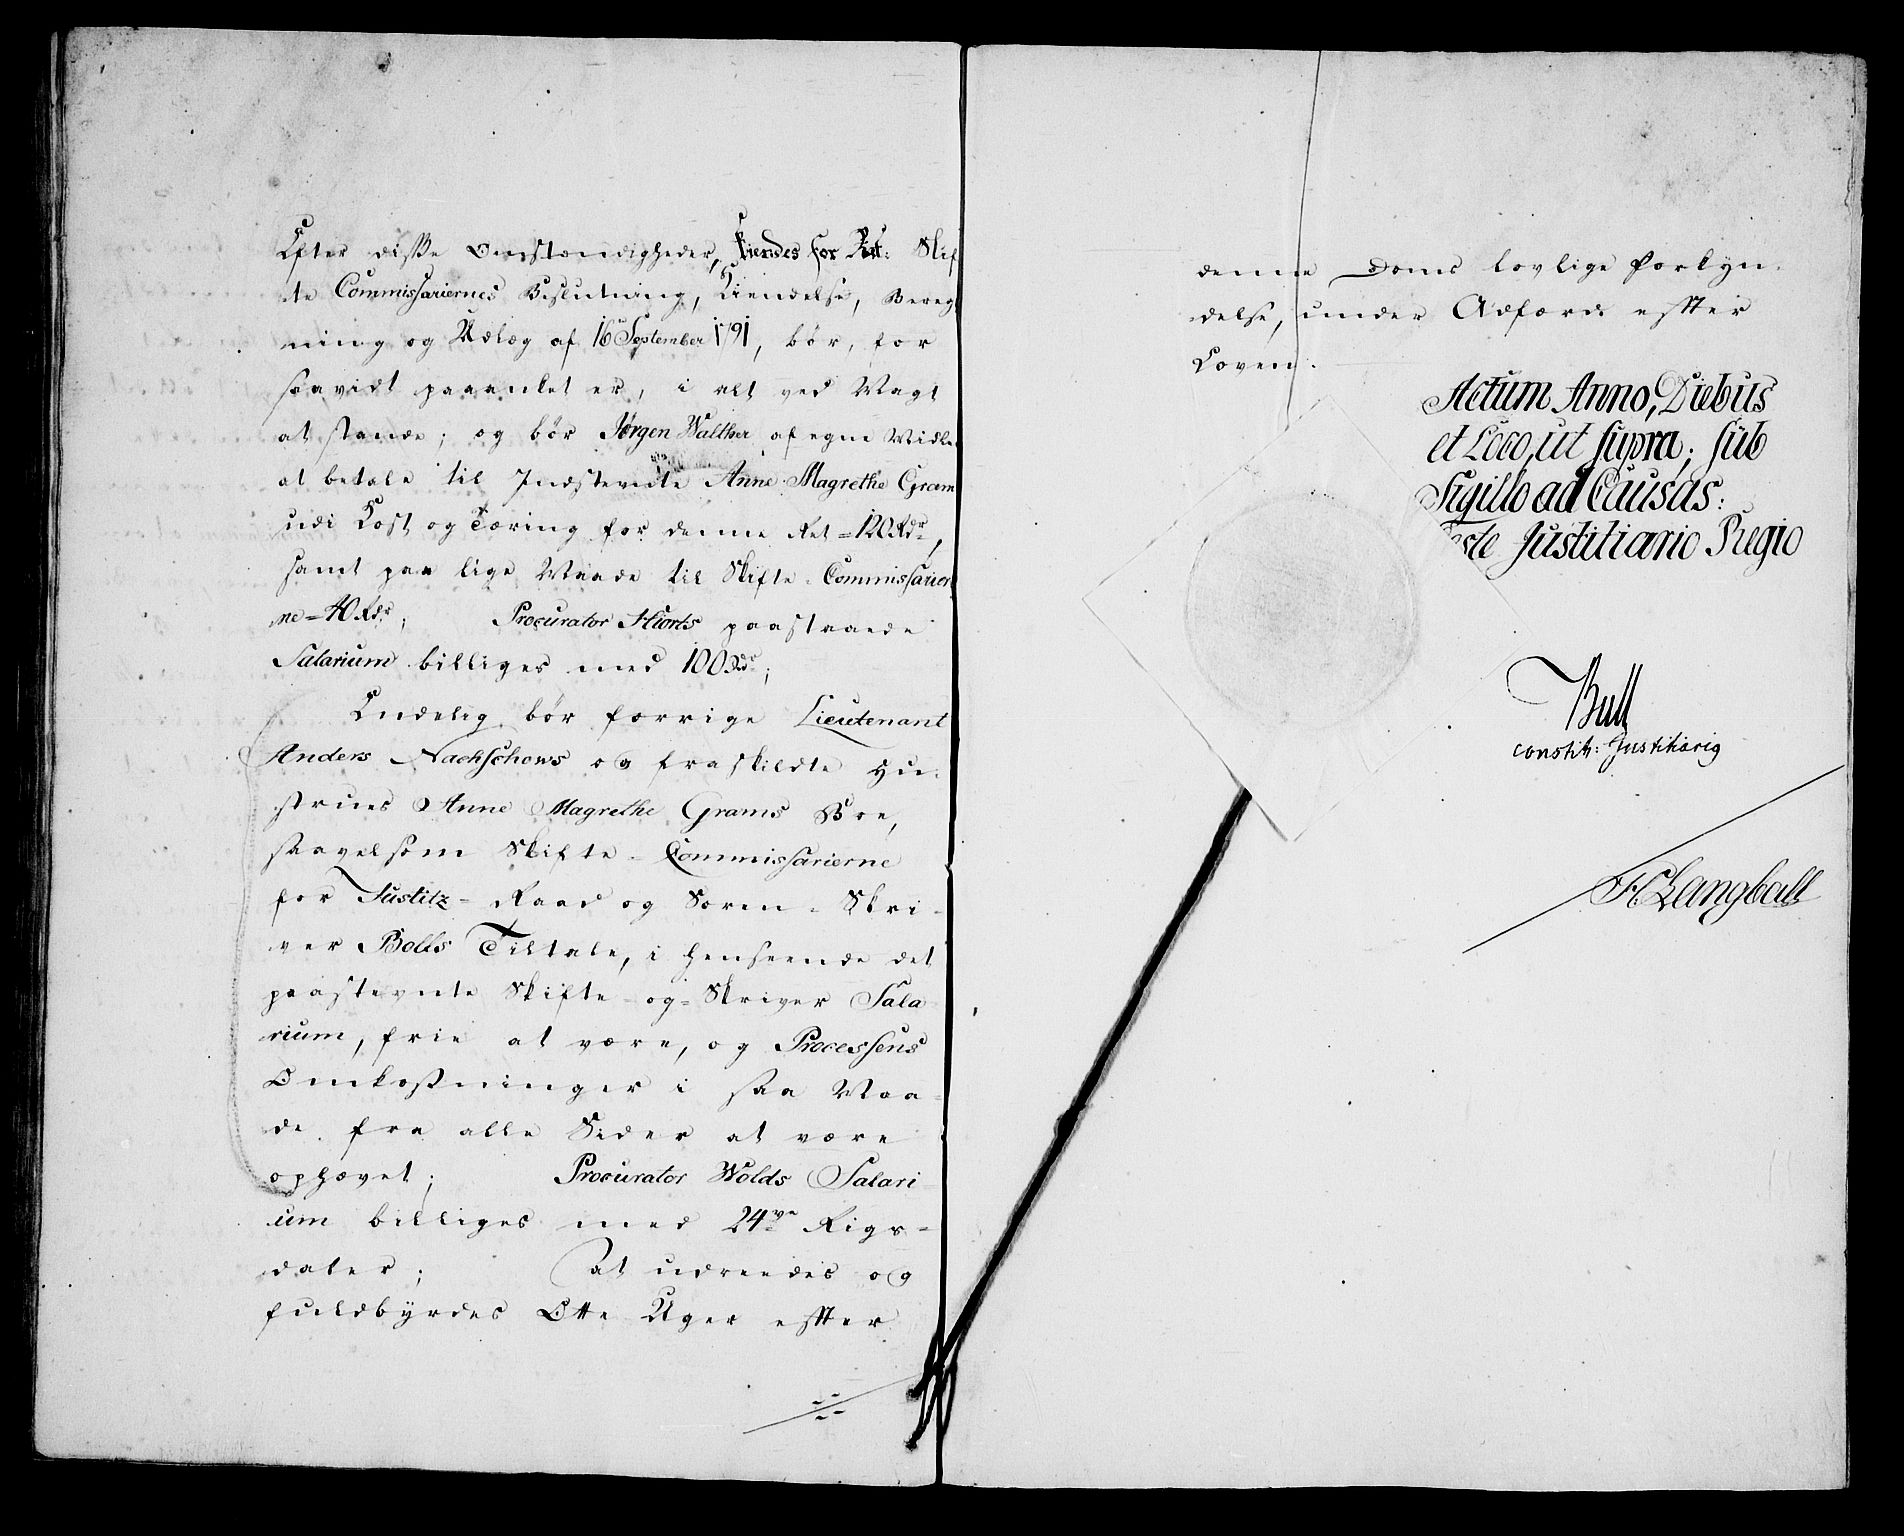 Efter disse Omstændigheder, kiendes for Ret: Skif
te Commissariernes Beslutning, Kiendelse, Bereg
ning og Udlæg af 16de September 1791, bør, for
saavidt paaanket er, i alt ved Magt
at stande; og bør Jørgen Walther af egne Midler
at betale til Indstevnte Anne Magrethe Gram
udi Kost og Tæring for denne Ret = 120 Rdr,
samt paa lige Maade til Skifte-Commissarier
ne = 40 Rdr; Procurator Hiorts paastaaede
Salarium billiges med 100 Rdr;
Endelig bør forrige Lieutenant
Anders Nachschows og fraskildte Hu-
strues Anne Magrethe Grams Boe,
saavelsom Skifte-Commissarierne
for Justitz-Raad og Soren-Skri-
ver Bolls Tiltale, i Henseende det
paastevnte Skifte-og-Skriver Sala
rium, frie at være, og Processens
Omkostninger i saa Maa-
de fra alle Sider at være
ophævet; Procurator Wolds Salari
um billiges med 24ve Rigs-
daler; At udreedes og
fuldbyrdes Otte Uger efter
denne Doms lovlige Forkyn-
delse, under Adfærd efter
Loven.
Actum Anno, Diebus
et Loco, ut supra; sub
Sigillo ad Causas:
este Justitiario Regio
Bull
constit: Justitiarig
F C Langballe